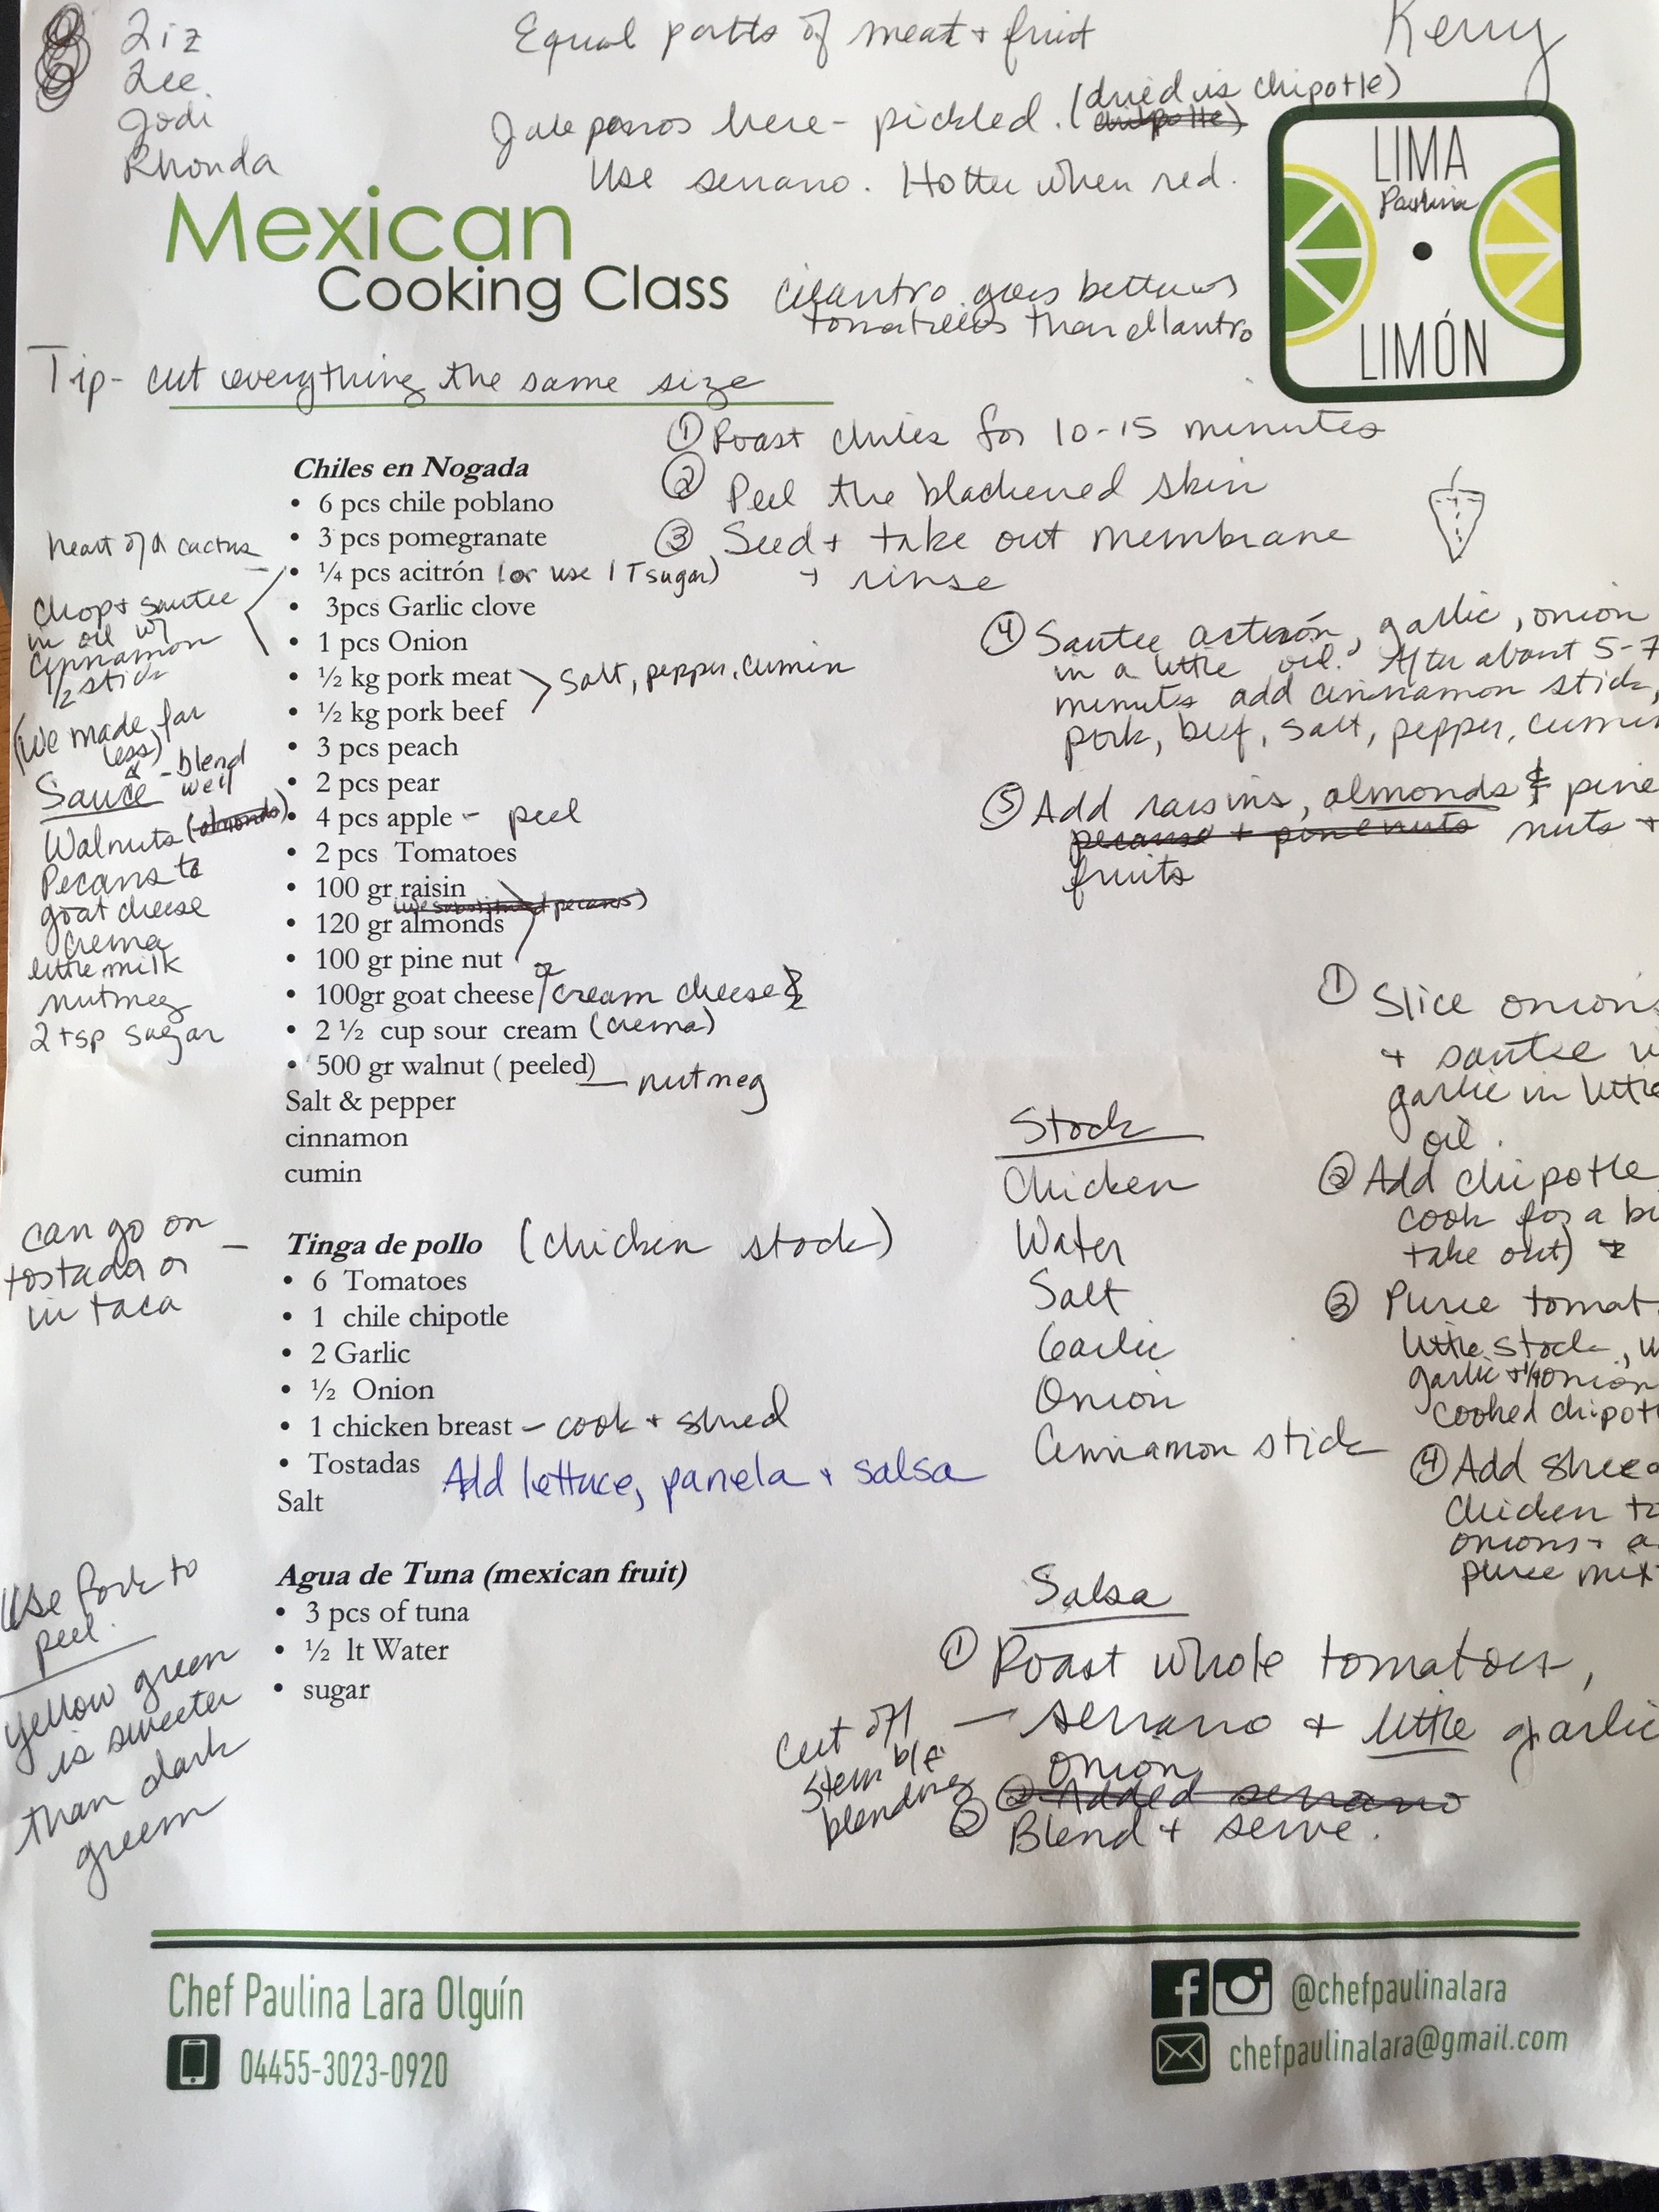 Liz
Lee
Jodi
Rhonda
Equal parts of meat + fruit
Kerry
Jalepenos here - pickled. (dried is chipotle)
Use serrano. Hotter when red.
LIMA
Paulina
LIMÓN
Mexican
Cooking Class
cilantro goes better w
tomatillos than cilantro
Tip- cut everything the same size
① Roast chiles for 10-15 minutes
② Peel the blackened skin
③ Seed + take out membrane
+ rinse
④ Sautee acitrón, garlic, onion
in a little oil. After about 5-7
minutes add cinnamon stick,
pork, beef, salt, pepper, cumin
⑤ Add raisins, almonds & pine
pecans + pine nuts nuts +
fruits
Chiles en Nogada
• 6 pcs chile poblano
• 3 pcs pomegranate
heart of a cactus
• ¼ pcs acitrón (or use 1 T sugar)
• 3pcs Garlic clove
• 1 pcs Onion
chop + sautee
in oil w/
cinnamon
1/2 stick
• ½ kg pork meat
• ½ kg pork beef
salt, pepper, cumin
• 3 pcs peach
• 2 pcs pear
• 4 pcs apple - peel
• 2 pcs Tomatoes
• 100 gr raisin
(we substituted pecans)
• 120 gr almonds
• 100 gr pine nut
• 100gr goat cheese / or cream cheese
• 2 ½ cup sour cream (crema)
• 500 gr walnut ( peeled) — nutmeg
Salt & pepper
cinnamon
cumin
(We made far
less)
Sauce - blend
well
Walnuts (almonds)
Pecans to
goat cheese
crema
little milk
nutmeg
2 tsp sugar
can go on
tostada or
in taca
Tinga de pollo (chicken stock)
• 6 Tomatoes
• 1 chile chipotle
• 2 Garlic
• ½ Onion
• 1 chicken breast - cook + shred
• Tostadas
Add lettuce, panela + salsa
Salt
Stock
Chicken
Water
Salt
Garlic
Onion
Cinnamon stick
① Slice onions
+ sautee w
garlic in little
oil.
② Add chipotle
cook for a bi
take out) +
③ Puree tomat
little stock, w
garlic + 1/4 onion
cooked chipot
④ Add shred
chicken to
onions + a
puree mix
Agua de Tuna (mexican fruit)
• 3 pcs of tuna
• ½ lt Water
• sugar
Use fork to
peel.
yellow green
is sweeter
than dark
green
Salsa
① Roast whole tomatoes,
serrano + little garlic
onion
② Added serrano
② Blend + serve.
Cut off
stem b/f
blending
Chef Paulina Lara Olguín
04455-3023-0920
@chefpaulinalara
chefpaulinalara@gmail.com